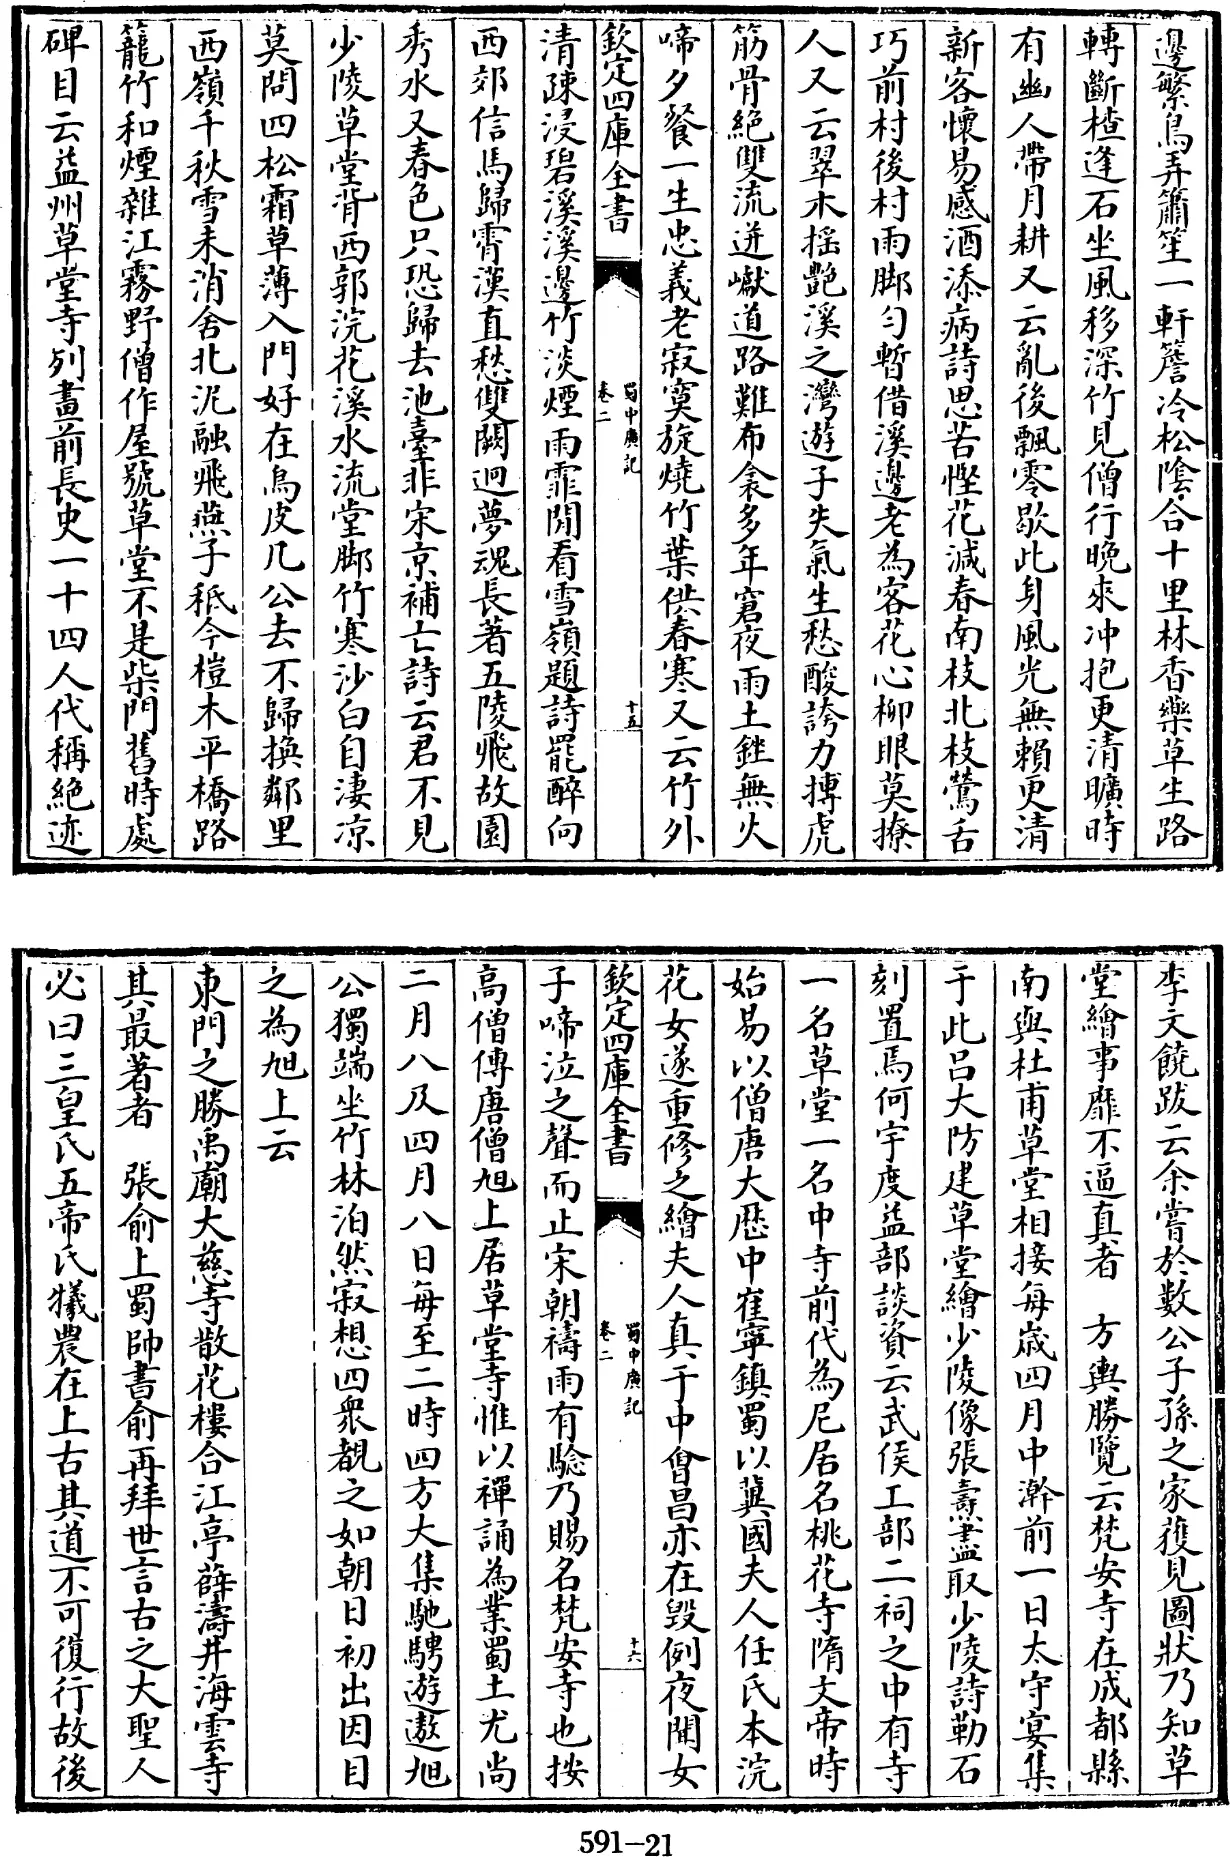 邊繁鳥弄簫笙一軒簷冷松陰合十里林香藥草生路
轉斷橋逢石坐風移深竹見僧行晚來冲抱更清曠時
有幽人帶月耕又云亂後飄零歇此身風光無賴更清
新客懷易感酒添病詩思苦慳花減春南枝北枝鶯舌
巧前村後村雨脚勻暫借溪邊老為客花心柳眼莫撩
人又云翠木搖艷溪之灣遊子失氣生愁酸誇力搏虎
筋骨絶雙流迸巘道路難布衾多年窘夜雨土銼無火
啼夕餐一生忠義老寂寞旋燒竹葉供春寒又云竹外
欽定四庫全書
蜀中廣記
卷二
十五
清疎浸碧溪溪邊竹淡煙雨霏閒看雪嶺題詩罷醉向
西郊信馬歸霄漢直愁雙闕迥夢魂長著五陵飛故園
秀水又春色只恐歸去池臺非宋京補亡詩云君不見
少陵草堂背西郭浣花溪水流堂脚竹寒沙白自淒凉
莫問四松霜草薄入門好在烏皮几公去不歸換鄰里
西嶺千秋雪未消舍北泥融飛燕子秪今榿木平橋路
籠竹和煙雜江霧野僧作屋號草堂不是柴門舊時處
碑目云益州草堂寺列畫前長史一十四人代稱絶迹
李文饒跋云余嘗於數公子孫之家蒦見圖狀乃知草
堂繪事靡不逼真者　方輿勝覽云梵安寺在成都縣
南與杜甫草堂相接每歲四月中澣前一日太守宴集
于此吕大防建草堂繪少陵像張燾盡取少陵詩勒石
刻置焉何宇度益部談資云武侯工部二祠之中有寺
一名草堂一名中寺前代為尼居名桃花寺隋文帝時
始易以僧唐大歷中崔寧鎮蜀以冀國夫人任氏本浣
花女遂重修之繪夫人真于中會昌亦在毀例夜聞女
欽定四庫全書
蜀中廣記
卷二
十六
子啼泣之聲而止宋朝禱雨有驗乃賜名梵安寺也按
高僧傳唐僧旭上居草堂寺惟以禪誦為業蜀土尤尚
二月八及四月八日每至二時四方大集馳騁遊遨旭
公獨端坐竹林泊然寂想四衆覩之如朝日初出因目
之為旭上云
東門之勝禹廟大慈寺散花樓合江亭薛濤井海雲寺
其最著者　張俞上蜀帥書俞再拜世言古之大聖人
必曰三皇氏五帝氏犧農在上古其道不可復行故後
591-21